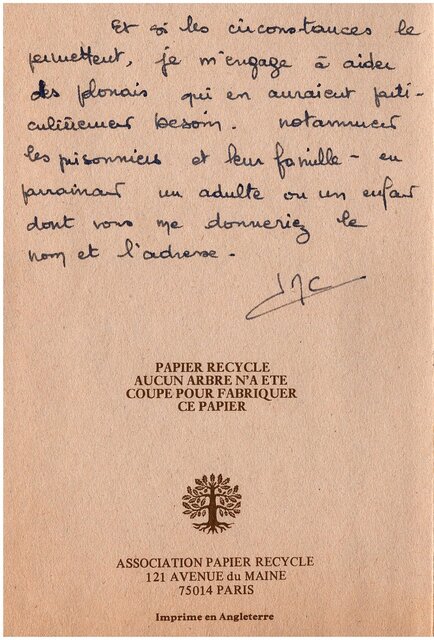 Et si les circonstances le
permettent, je m'engage à aider
des polonais qui en auraient parti-
culièrement besoin. notamment
les prisonniers et leur famille - en
parrainant un adulte ou un enfant
dont vous me donneriez le
nom et l'adresse.
PAPIER RECYCLE
AUCUN ARBRE N'A ETE
COUPE POUR FABRIQUER
CE PAPIER
ASSOCIATION PAPIER RECYCLE
121 AVENUE du MAINE
75014 PARIS
Imprime en Angleterre